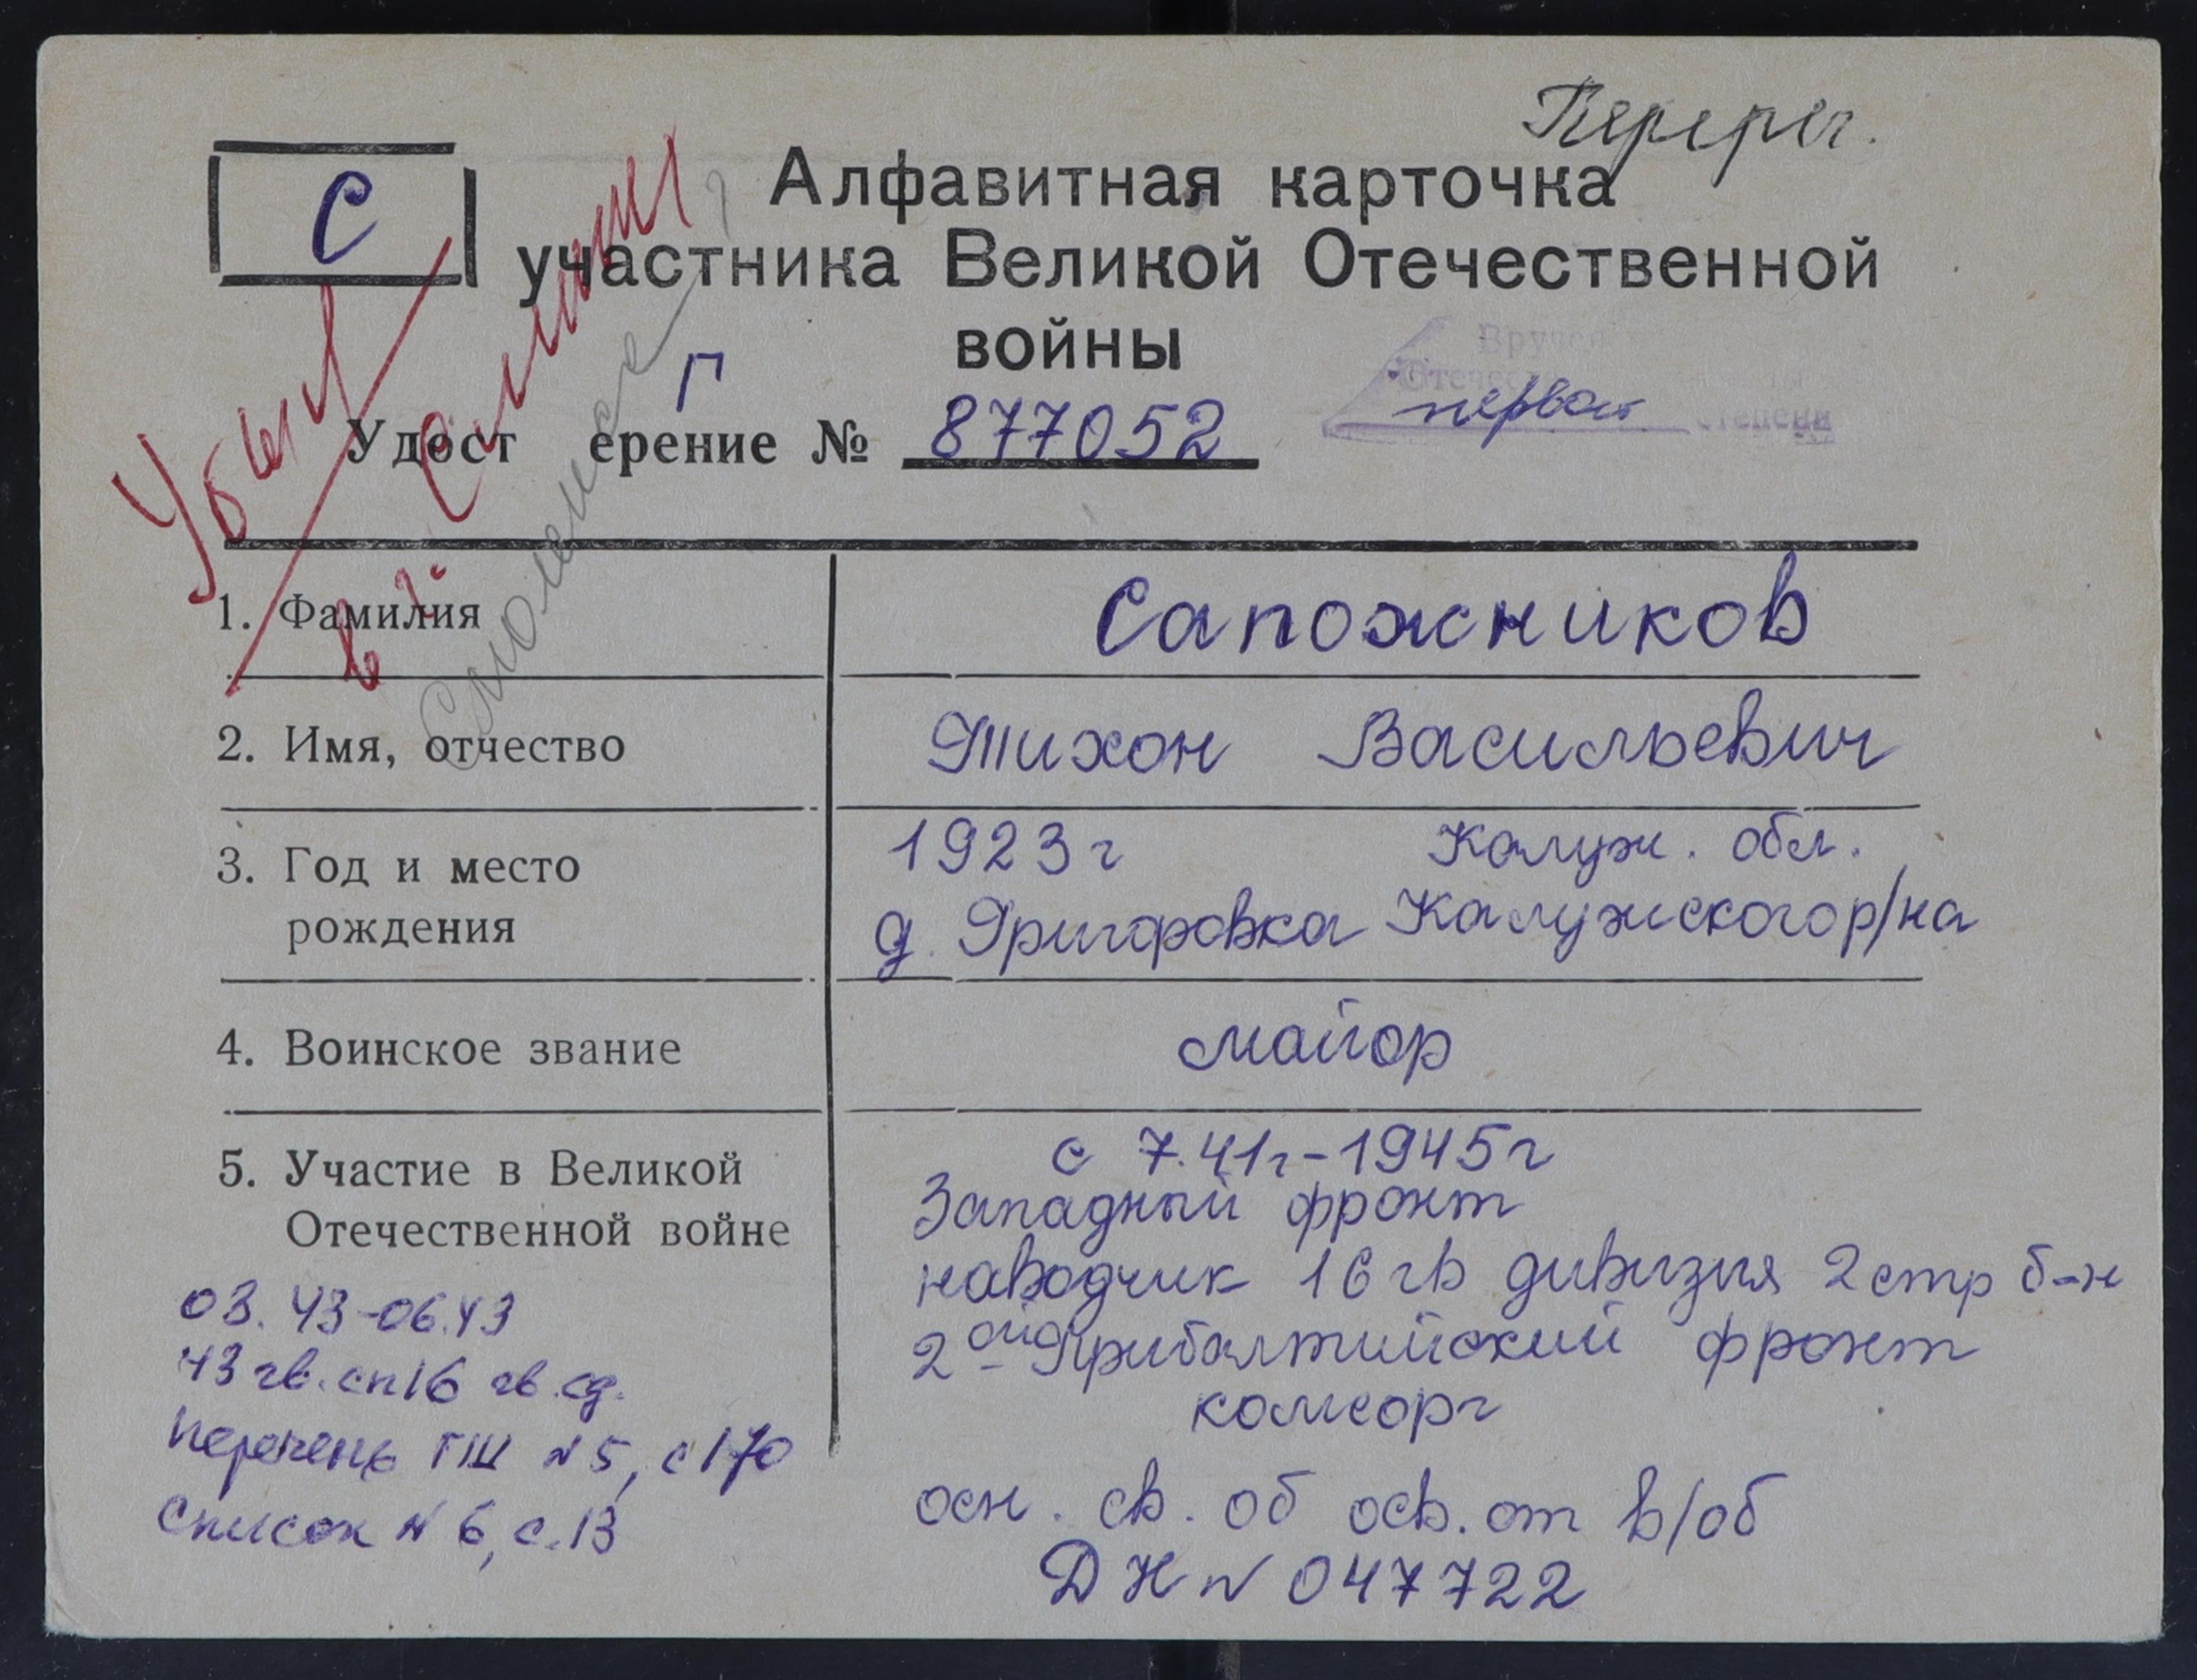 Перерег.
С
Алфавитная карточка
участника Великой Отечественной
войны
Вручен
Отечест
первой
степени
Г
Удост ерение № 877052
Убыл
в г.
Смоленск
1. Фамилия Сапожников
2. Имя, отчество Тихон Васильевич
3. Год и место 1923г Калуж. обл.
рождения д. Григоровка Калужского р/на
4. Воинское звание майор
5. Участие в Великой с 7.41г-1945г
Отечественной войне Западный фронт
наводчик 16 гв дивизия 2 стр б-н
2ой Прибалтийский фронт
комсорг
03.43-06.43
43 гв. сп 16 гв. сд.
перечень ГШ N 5, с 170
список N 6, с. 13
осн. св. об осв. от в/об
ДН N 047722